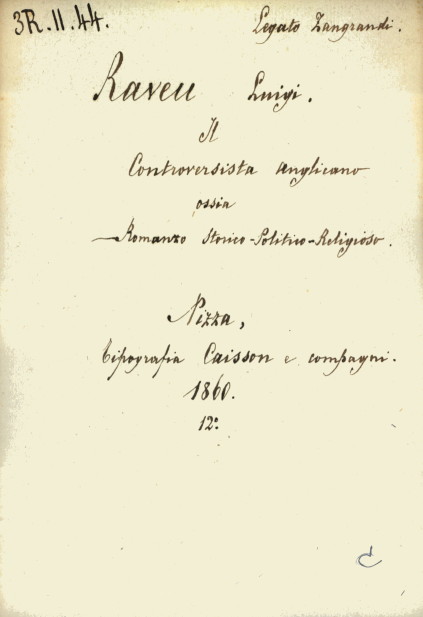 3R.II.44.
Legato Zangrandi.
Raveu Luigi.
Il
Controversista anglicano
ossia
Romanzo Storico-Politico-Religioso.
Nizza,
Tipografia Caisson e compagni.
1860.
12º.
C